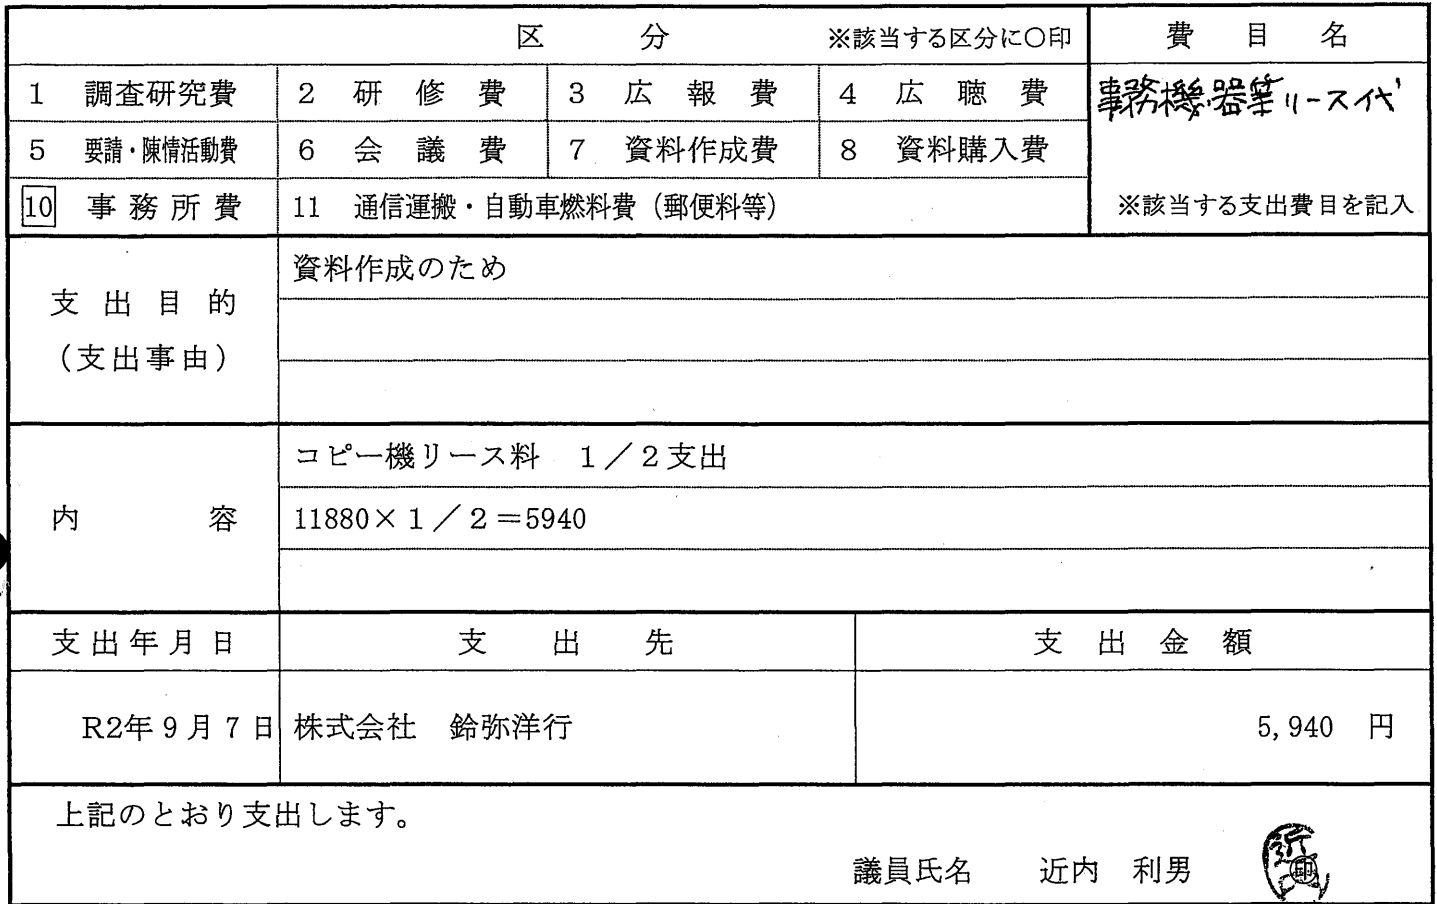 区　分　※該当する区分に○印　費　目　名
1　調査研究費　2　研　修　費　3　広　報　費　4　広　聴　費　事務機器等リース代
5　要請・陳情活動費　6　会　議　費　7　資料作成費　8　資料購入費
10　事務所費　11　通信運搬・自動車燃料費（郵便料等）　※該当する支出費目を記入
資料作成のため
支出目的
（支出事由）
コピー機リース料　１／２支出
内　容　11880×１／２＝5940
支出年月日　支　出　先　支　出　金　額
R2年９月７日　株式会社　鈴弥洋行　5,940　円
上記のとおり支出します。
議員氏名　近内　利男　印